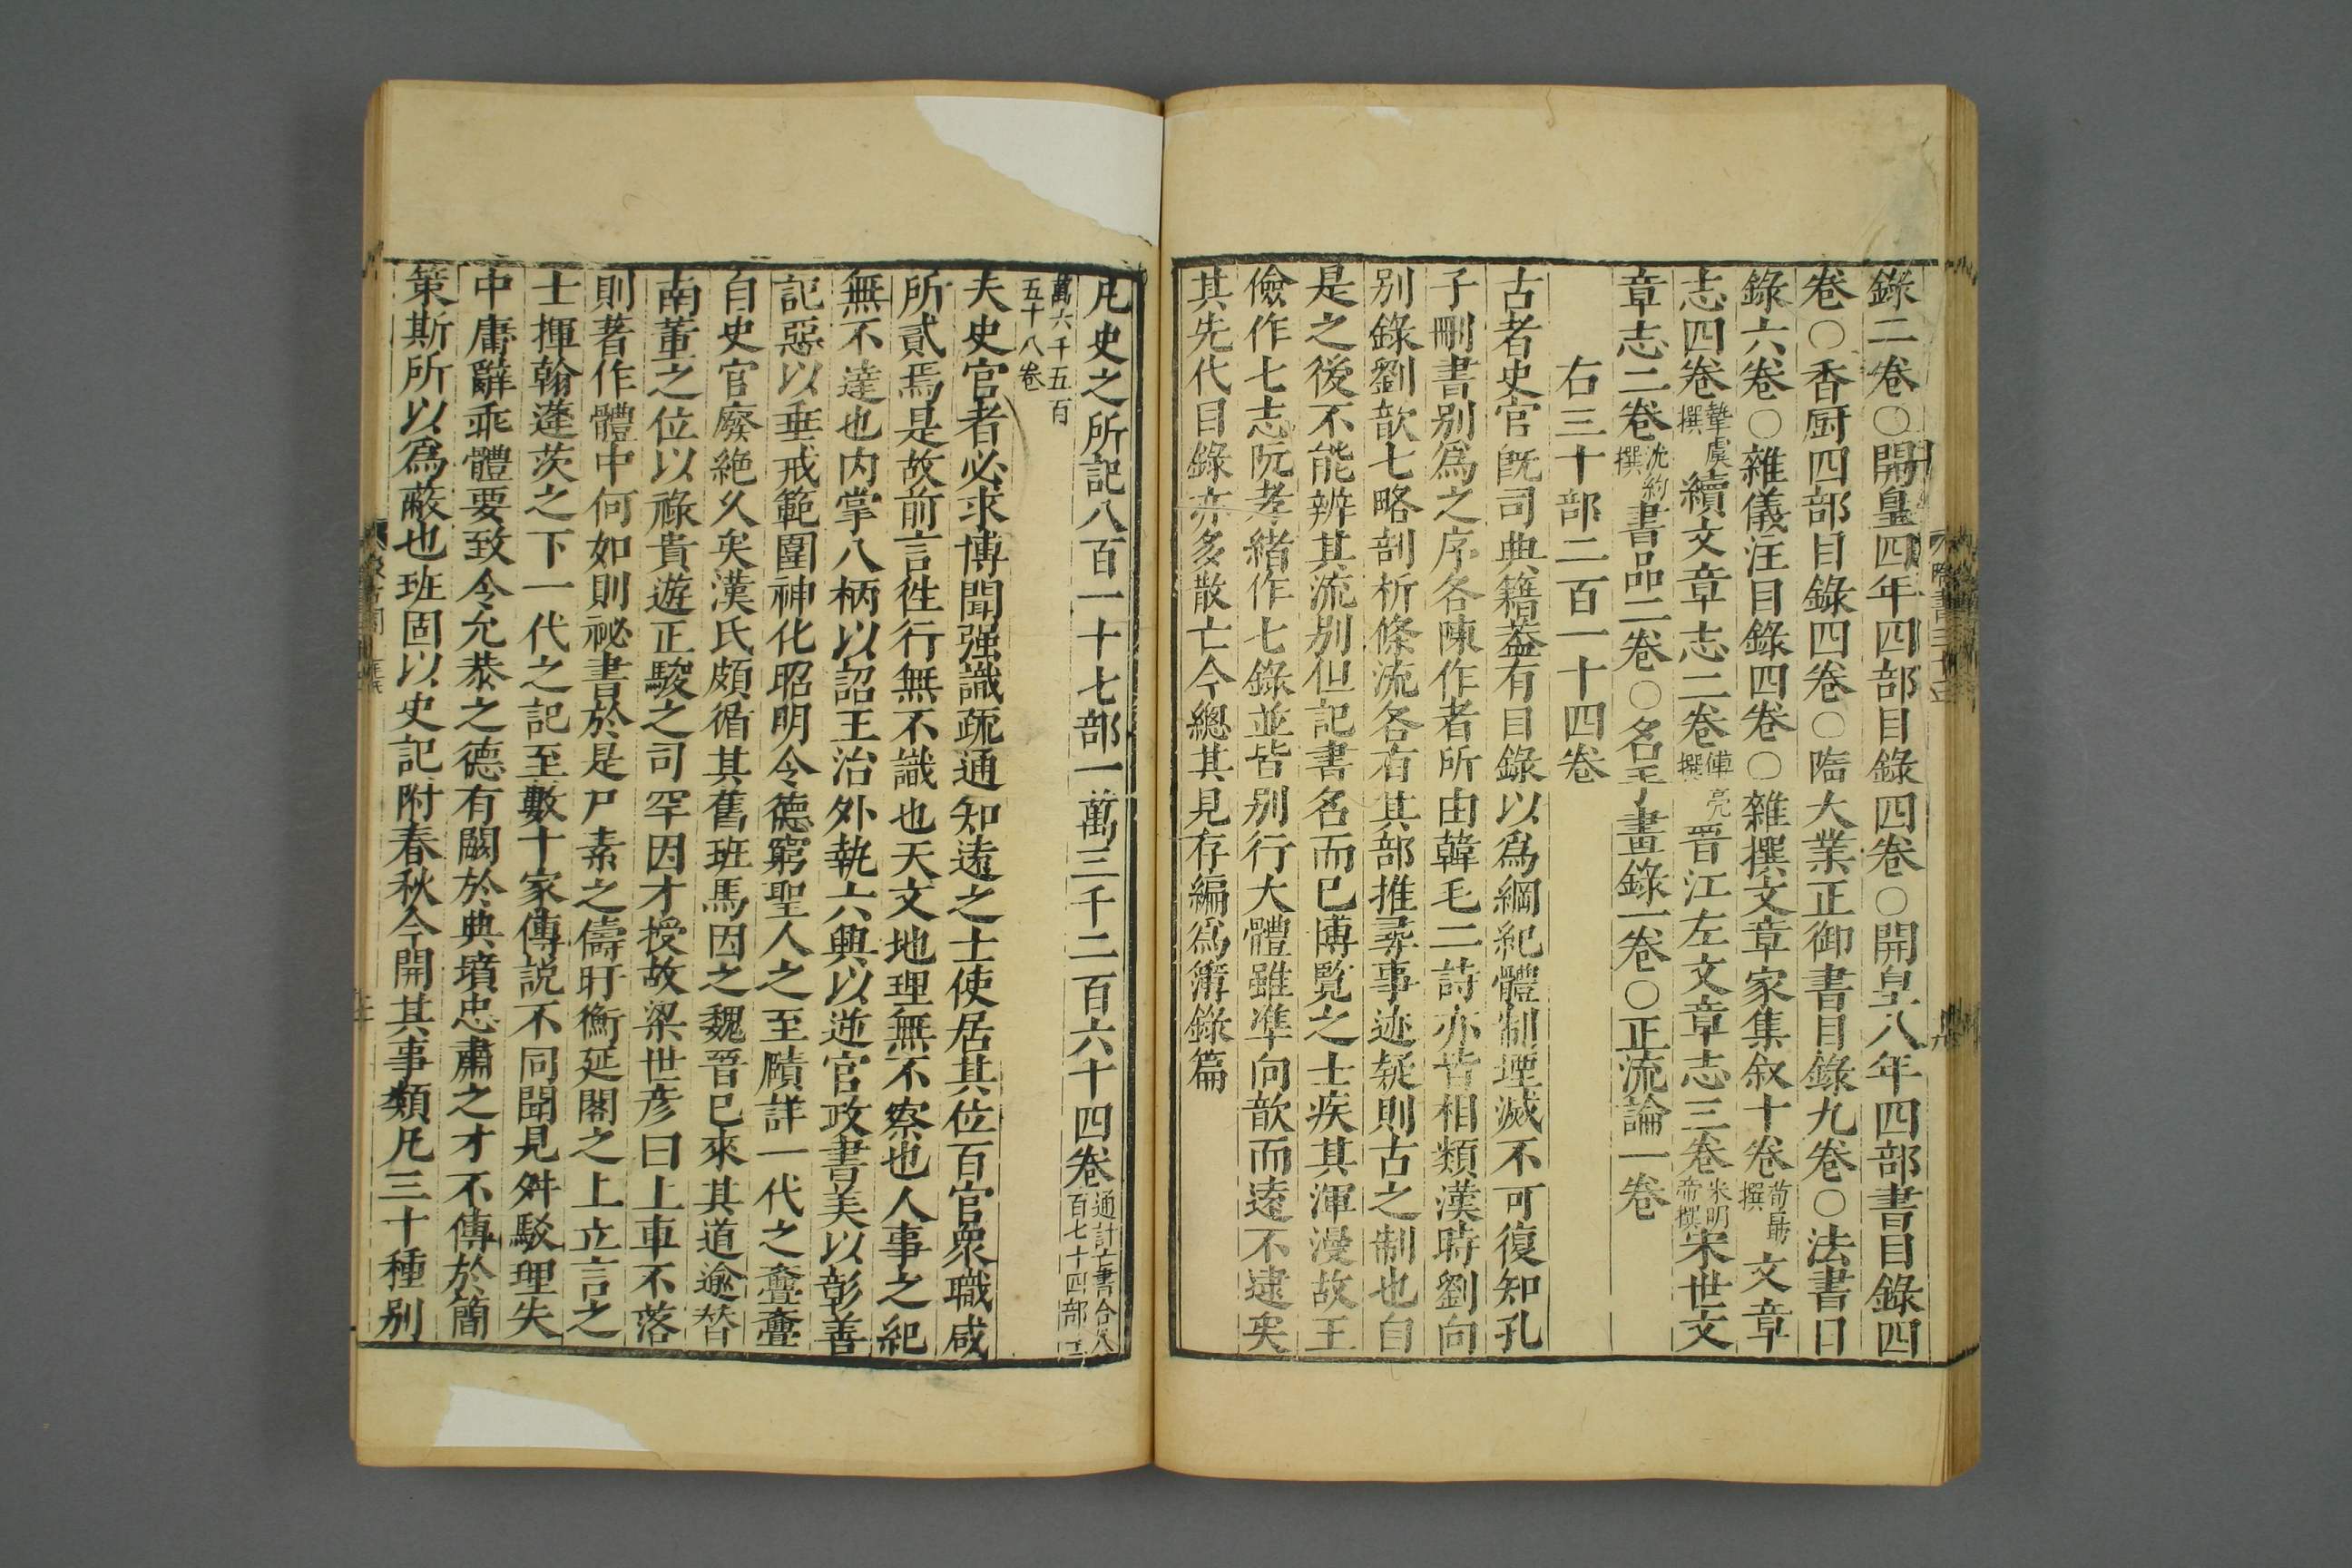 錄二卷○開皇四年四部目錄四卷○開皇八年四部書目錄四
卷○香厨四部目錄四卷○隋大業正御書目錄九卷○法書目
錄六卷○雜儀注目錄四卷○雜撰文章家集叙十卷荀勗撰文章
志四卷摯虞撰續文章志二卷傅亮撰晋江左文章志三卷宋明帝撰宋世文
章志二卷沈約撰書品二卷○名手畫錄一卷○正流論一卷
右三十部二百一十四卷
古者史官旣司典籍蓋有目錄以爲綱紀體制堙滅不可復知孔
子刪書別爲之序各陳作者所由韓毛二詩亦皆相類漢時劉向
別錄劉歆七略剖析條流各有其部推尋事迹疑則古之制也自
是之後不能辨其流別但記書名而已博覽之士疾其渾漫故王
儉作七志阮孝緒作七錄並皆別行大體雖準向歆而遠不逮矣
其先代目錄亦多散亡今總其見存編爲簿錄篇
凡史之所記八百一十七部一萬三千二百六十四卷通計亡書合八百七十四部一
萬六千五百五十八卷
夫史官者必求博聞强識疏通知遠之士使居其位百官衆職咸
所貳焉是故前言徃行無不識也天文地理無不察也人事之紀
無不達也内掌八柄以詔王治外執六典以逆官政書美以彰善
記惡以垂戒範圍神化昭明令德窮聖人之至賾詳一代之亹亹
自史官廢絶久矣漢氏頗循其舊班馬因之魏晋已來其道逾替
南董之位以祿貴遊正駿之司罕因才授故梁世彦曰上車不落
則著作體中何如則祕書於是尸素之儔盱衡延閣之上立言之
士揮翰蓬茨之下一代之記至數十家傳説不同聞見舛駁理失
中庸辭乖體要致令允恭之德有闕於典墳忠肅之才不傳於簡
策斯所以爲蔽也班固以史記附春秋今開其事類凡三十種別